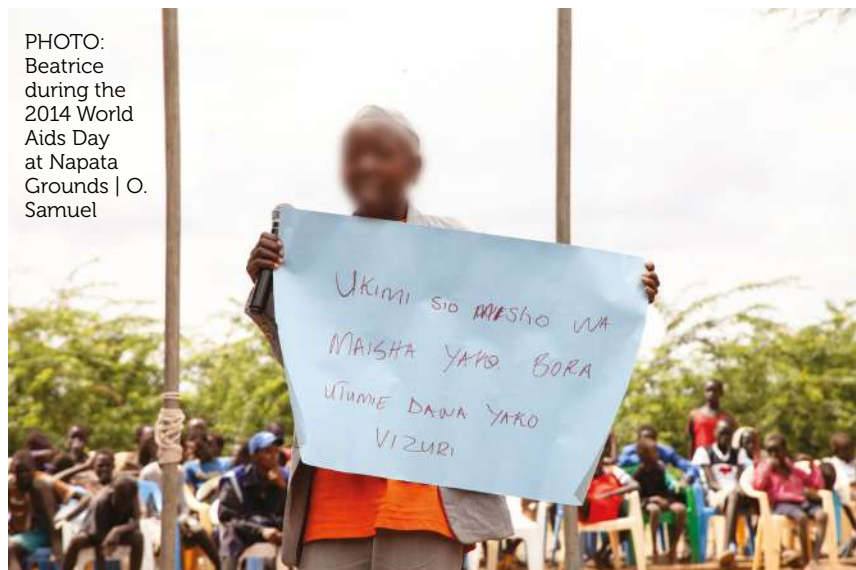 PHOTO:
Beatrice
during the
2014 World
Aids Day
at Napata
Grounds | O.
Samuel
UKIMI SIO MWISHO WA
MAISHA YAKO BORA
UTUMIE DAWA YAKO
VIZURI